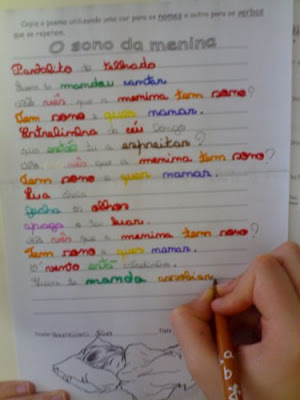 Copia o poema utilizando uma cor para os nomes e outra para os verbos
que se repetem.
O sono da menina
Pardalito do telhado
Quem te mandou cantar
não vês que a menina tem sono?
Tem sono e quer mamar.
Estrelinha do céu longo
que estás tu a espreitar?
Não vês que a menina tem sono?
Tem sono e quer mamar.
Lua cheia
fecha os olhos
apaga o teu luar.
não vês que a menina tem sono?
Tem sono e quer mamar.
Ó vento está caladinho.
Quem te manda assobiar